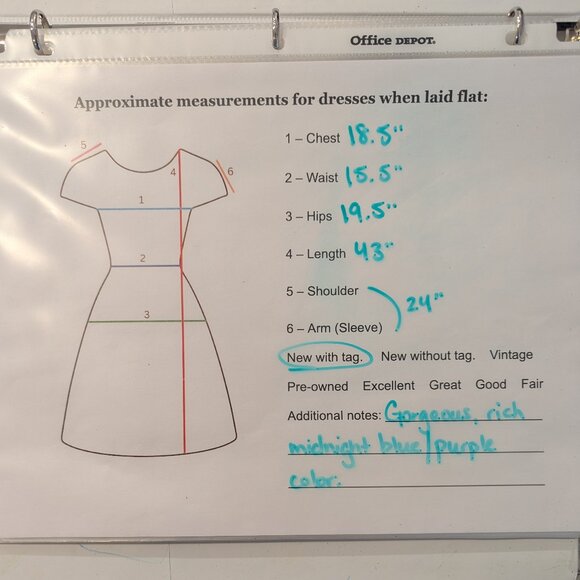 Office DEPOT.
Approximate measurements for dresses when laid flat:
5
4
6
1
2
3
1 – Chest 18.5"
2 – Waist 15.5"
3 – Hips 19.5"
4 – Length 43"
5 – Shoulder
24"
6 – Arm (Sleeve)
New with tag. New without tag. Vintage
Pre-owned Excellent Great Good Fair
Additional notes: Gorgeous, rich
midnight blue/purple
color.